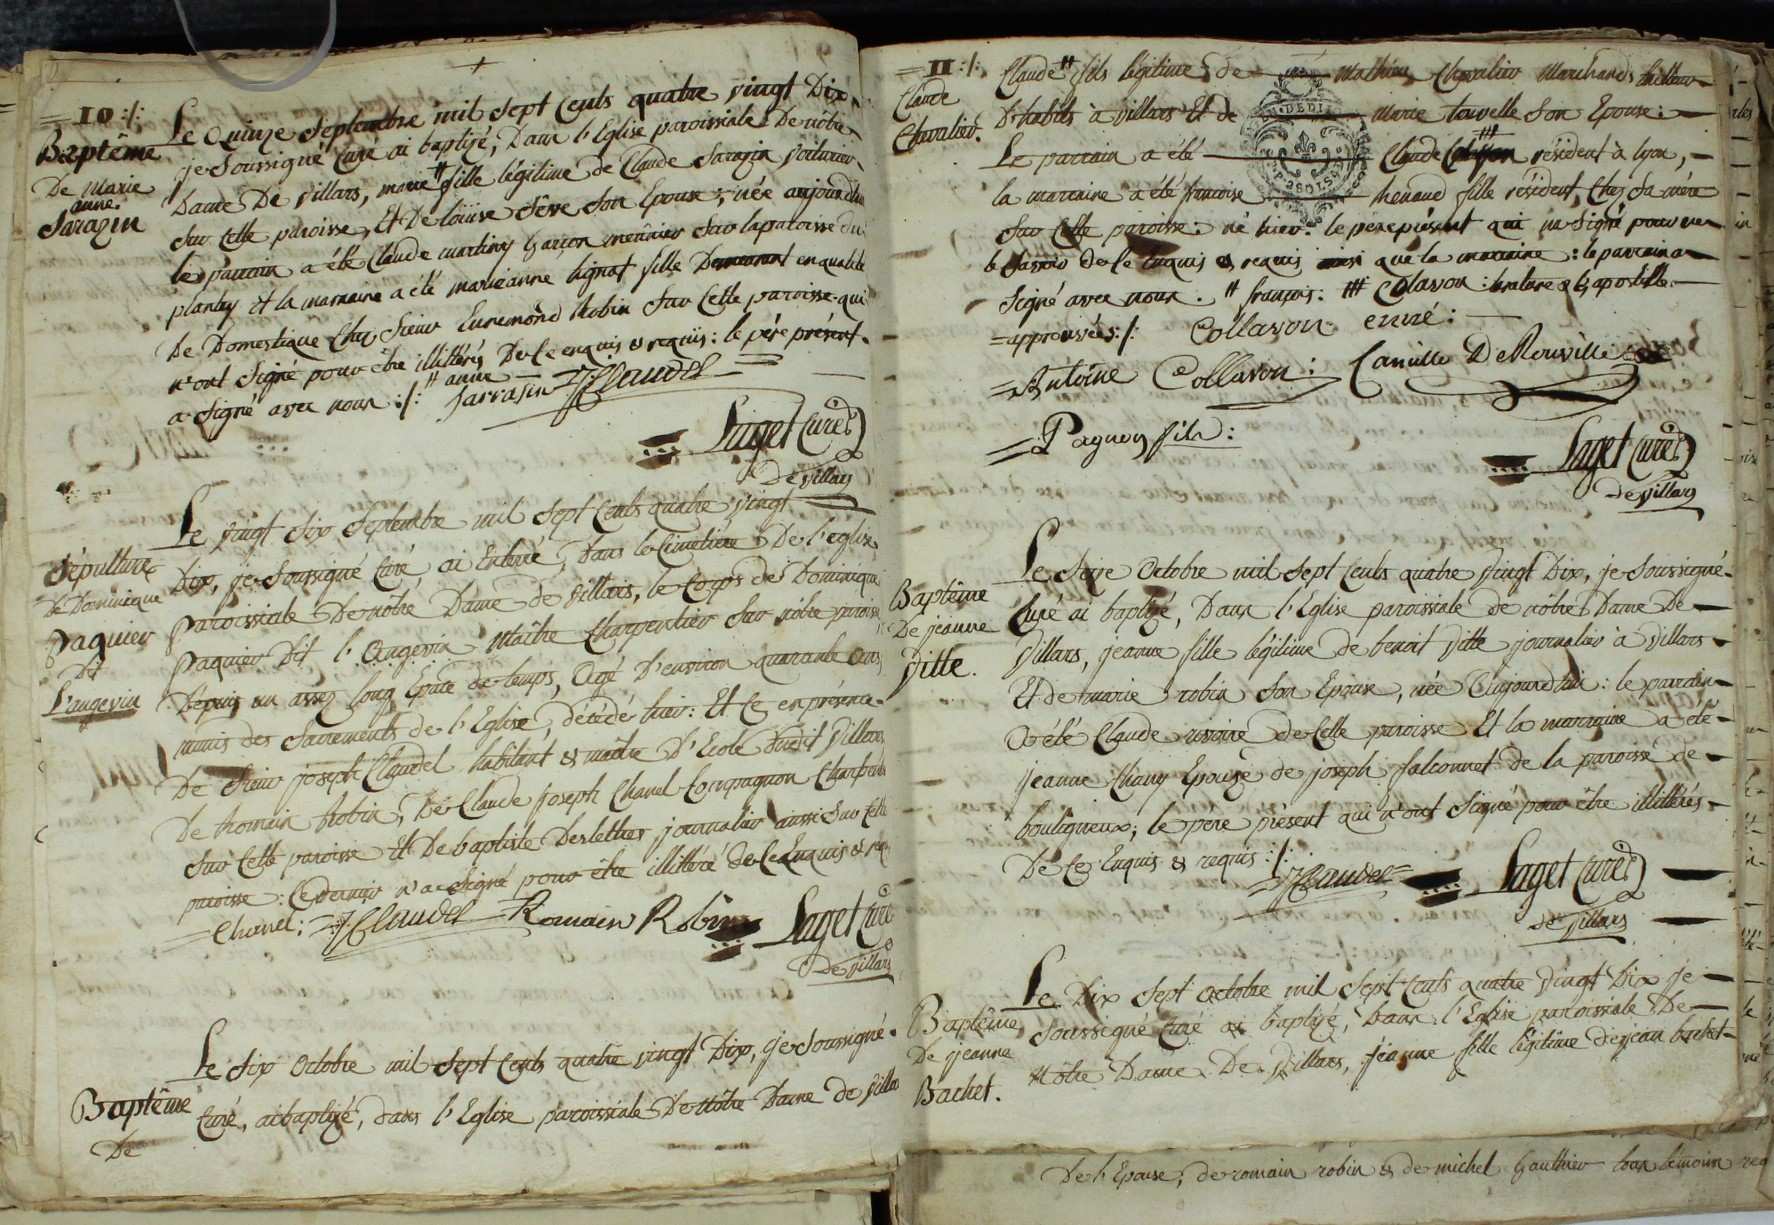 = 10 :/:
Baptême
De Marie
anne
Sarazin
Le Quinze Septembre mil Sept Cents quatre vingt Dix
je Soussigné Curé ai baptizé, Dans l'Eglise paroissiale De nôtre
Dame De Villars, marie # fille légitime de Claude Sarazin voiturier
Sur Cette paroisse, Et De loüise Sêrre Son Epouse; née aujourd'hui
le parrain a été Claude martiny Garçon meûnier Sur la paroisse du
plantay et la marraine a été marieanne lignat fille Demeurant en qualité
De Domestique Chez Sieur Euremond Robin Sur Cette paroisse qui
n'ont Signé pour être illitérés De Ce enquis & requis: le père présent
a Signé avec nous :/: # anne
Sarrasin J Claudel
Laget Curé
De Villars
Sépulture
De Dominique
Paquier
Dit
L'angevin
Le vingt Six Septembre mil Sept Cents quatre vingt
Dix, je Soussigné Curé, ai Enterré, Dans le Cimetière De l'eglise
paroissiale De nôtre Dame de Villars, le Corps de Dominique
Paquier Dit l'Angevin Maître Charpentier Sur nôtre paroisse
Depuis un assez long Epace de temps, Agé D'environ quarante Ans
munis des Sacrements de l'Eglise, décédé hier: Et Ce en présence
De Sieur joseph Claudel habitant & maître D'Ecole dudit Villars
De Romain Robin, De Claude joseph Chanel Compagnon Charpentier
Sur Cette paroisse Et De baptiste Desletter journalier aussi Sur Cette
paroisse: Ce dernier n'a Signé pour être illitéré de Ce Enquis & req
Chanel: J Claudel Romain Robin Laget Curé
De Villars
Baptême
De
Le Six Octobre mil Sept Cents quatre vingt Dix, je Soussigné
Curé, ai baptizé, dans l'Eglise paroissiale De Nôtre Dame de Villa
= 11 :/:
Claude
Chevalier.
Claude # fils légitime de Mathieu Chevalier Marchand tailleur
D'habits à Villars Et de Marie tavelle Son Epouse:
Le parrain a été Claude résident à lyon,
la marraine a été françoise Renaud fille résident Chez Sa mère
Sur Cette paroisse: né hier: le père présent qui na Signé pour ne
le Savoir de Ce Enquis & requis ainsi que la marraine: le parrain a
Signé avec nous. # françois: ### Collavon: &
approuvées :/: Collavon curé:
Antoine Collavon: Camille De Rouville
Pagnon fils:
Laget Curé
de Villars
Baptême
De jeanne
Vitte.
Le Seize Octobre mil Sept Cents quatre vingt Dix, je Soussigné
Curé ai baptizé, Dans l'Eglise paroissiale de nôtre Dame De
Villars, jeanne fille légitime de benoit Vitte journalier à Villars
Et de marie robin Son Epouse, née Aujourd'hui: le parrain
a été Claude de Cette paroisse Et la marraine a été
jeanne Epouse de joseph falconnet de la paroisse de
bouligneux; le père présent qui n'ont Signé pour être illitérés
De Ce Enquis & requis :/:
J Claudel Laget Curé
de Villars
Baptême
De jeanne
Bachet.
Le Dix Sept Octobre mil Sept Cents quatre vingt Dix je
Soussigné Curé ai baptizé, Dans l'Eglise paroissiale De
Nôtre Dame De Villars, jeanne fille légitime de jean bachet
De l'Epouse, de romain robin & de michel Gauthier tous témoins req